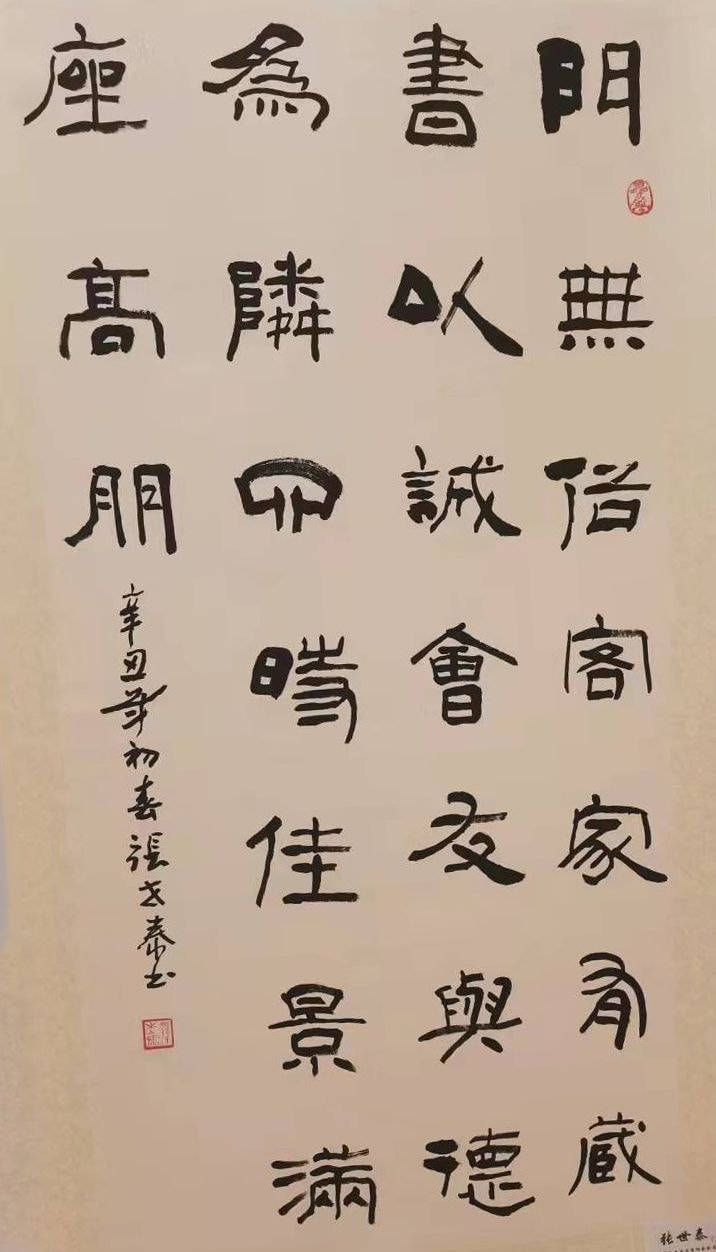 門無俗客家有藏
書以誠會友與德
為隣四時佳景滿
座高朋
辛丑年初春張世泰书
张世泰